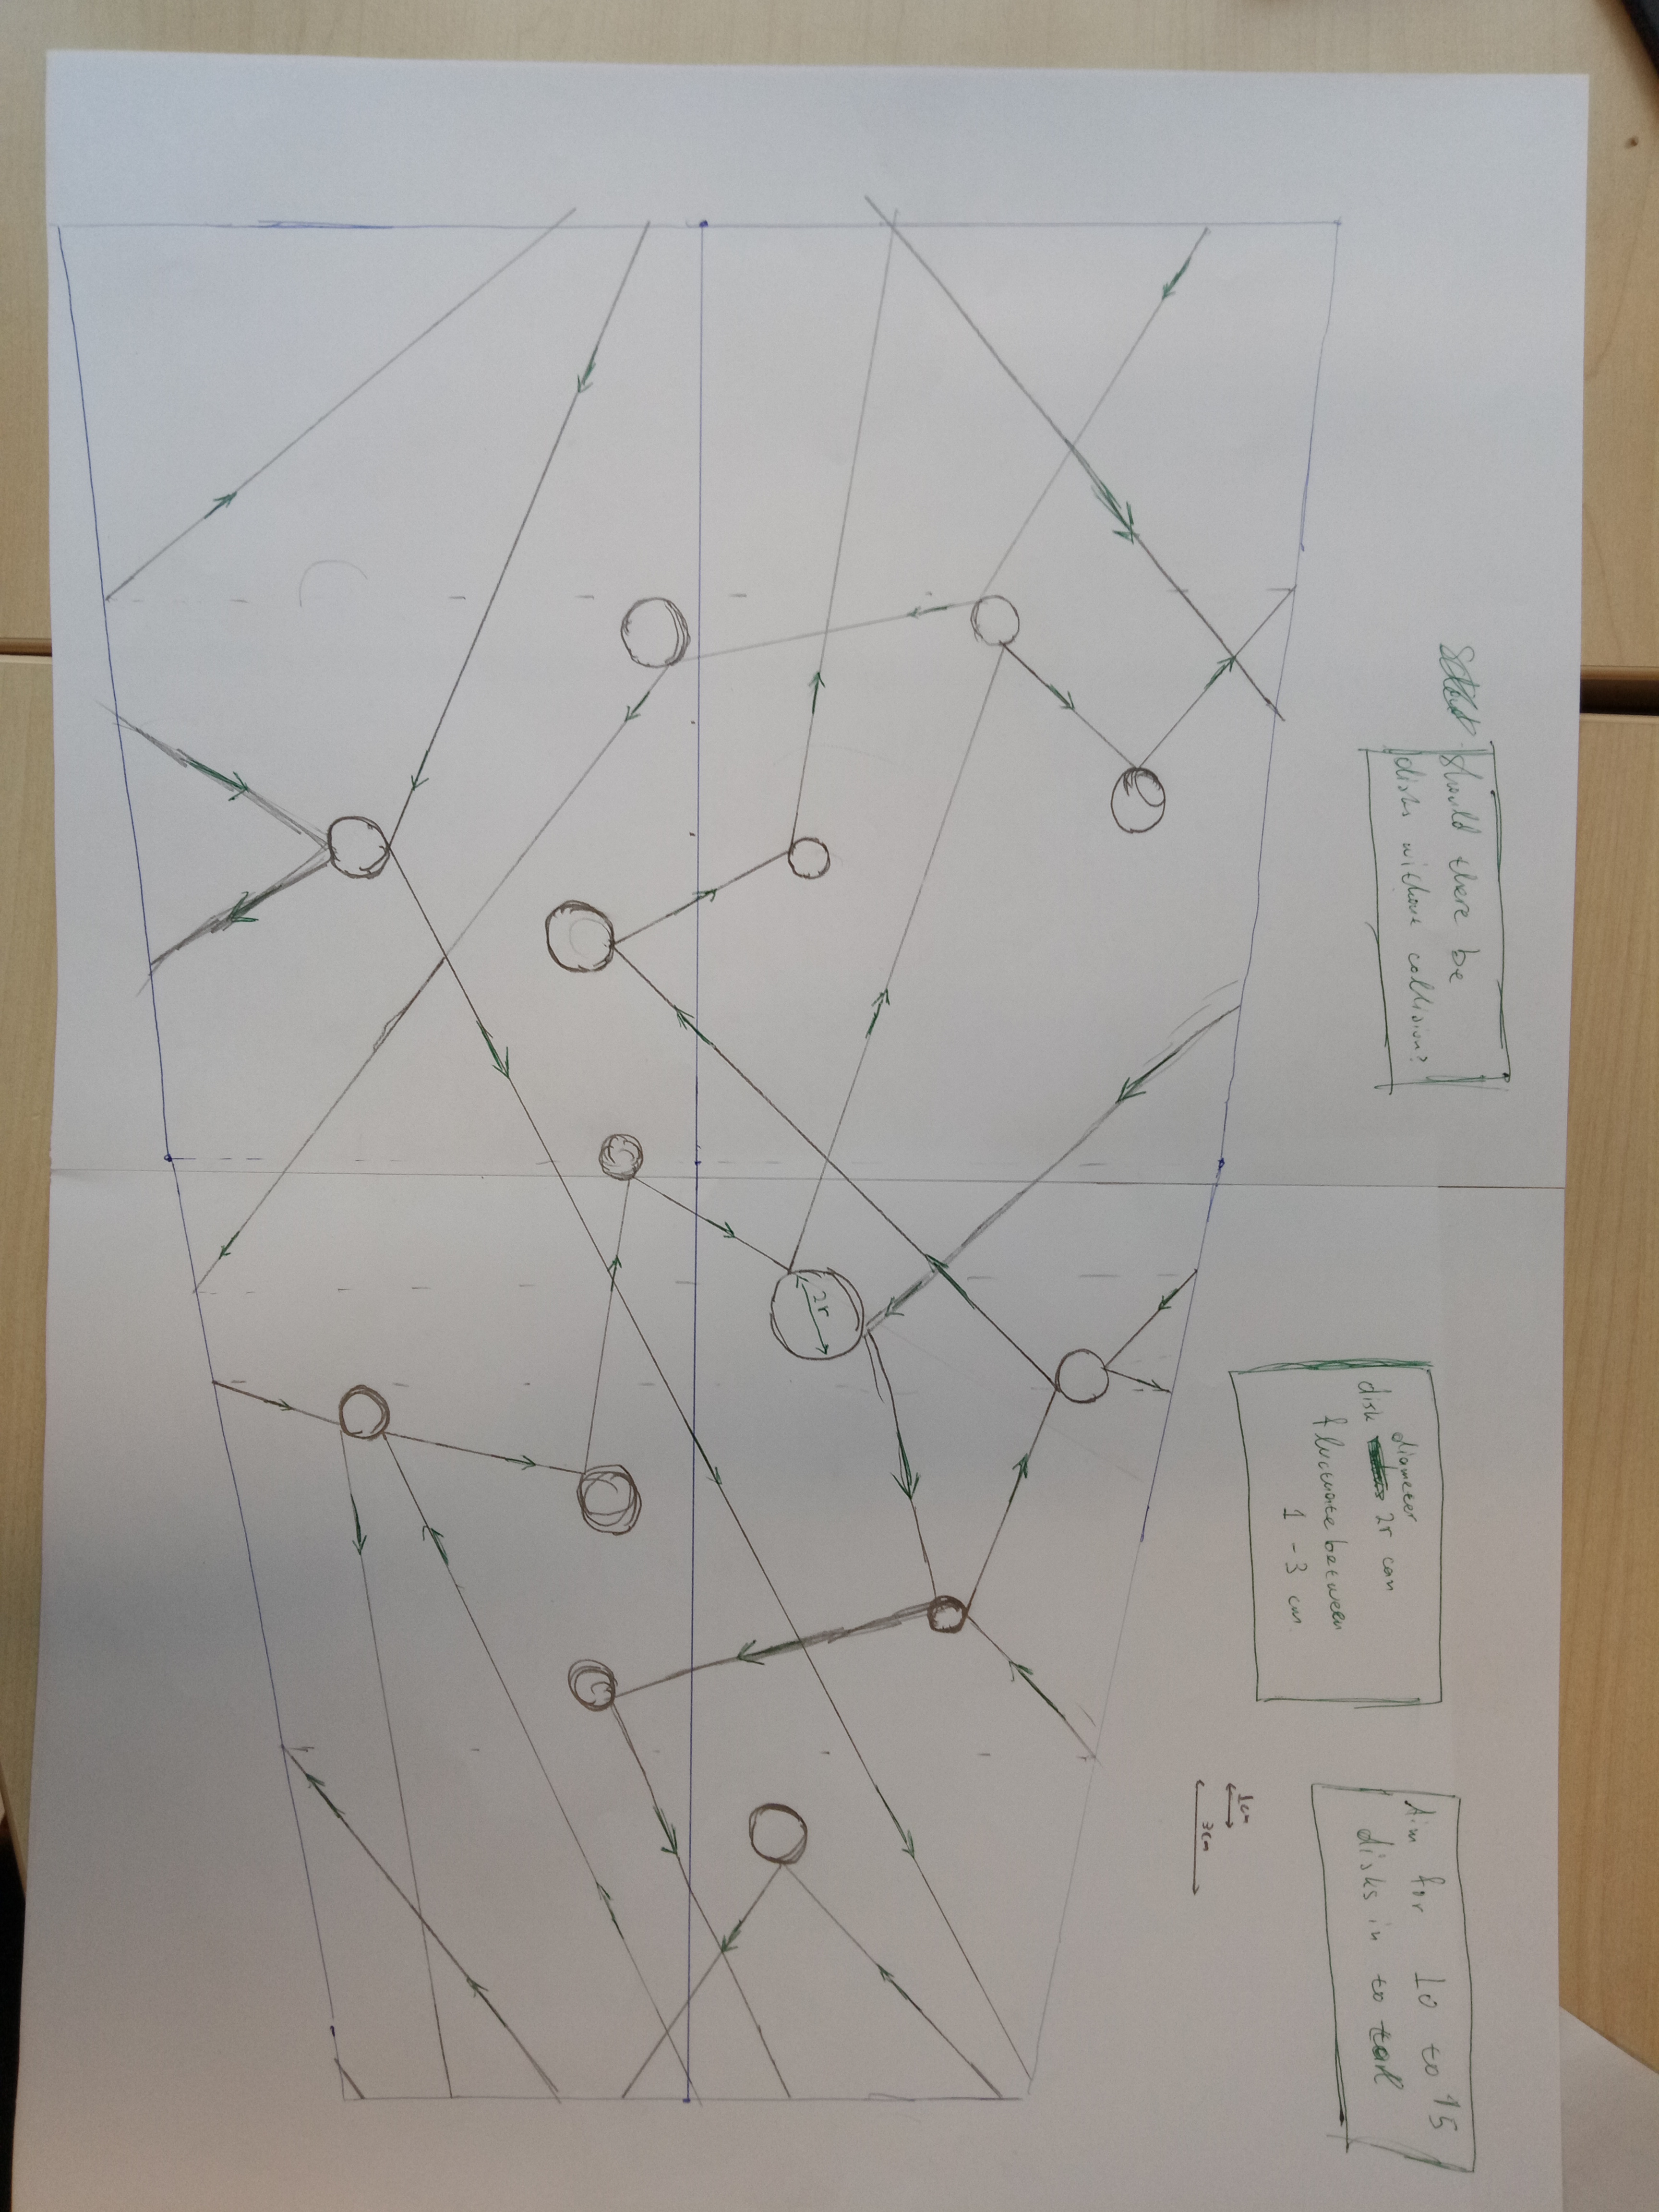 Should there be
disks without collision?
diameter
disk 2r can
fluctuate between
1 - 3 cm
Aim for 10 to 15
disks in to
1cm
3cm
2r